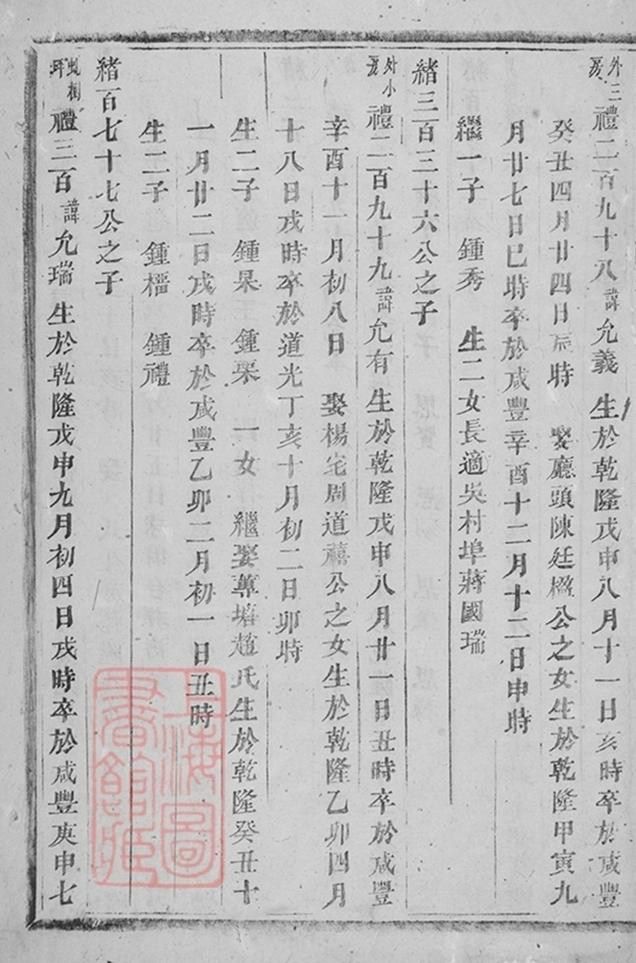 外三房 禮二百九十八 諱允義 生於乾隆戊申八月十一日亥時卒於咸豐
癸丑四月廿四日辰時 娶廳頭陳廷楹公之女生於乾隆甲寅九
月廿七日巳時卒於咸豐辛酉十二月十二日申時
繼一子 鍾秀 生二女長適吳村埠蔣國瑞
緒三百三十六公之子
外小房 禮二百九十九 諱允有 生於乾隆戊申八月廿一日丑時卒於咸豐
辛酉十一月初八日 娶楊宅周道禧公之女生於乾隆乙卯四月
十八日戌時卒於道光丁亥十月初二日卯時
生二子 鍾杲 鍾 一女 繼娶 塘趙氏生於乾隆癸丑十
一月廿二日戌時卒於咸豐乙卯二月初一日丑時
生二子 鍾榗 鍾禮
緒百七十七公之子
樹 禮三百 諱允瑞 生於乾隆戊申九月初四日戌時卒於咸豐庚申七
上海圖書館藏